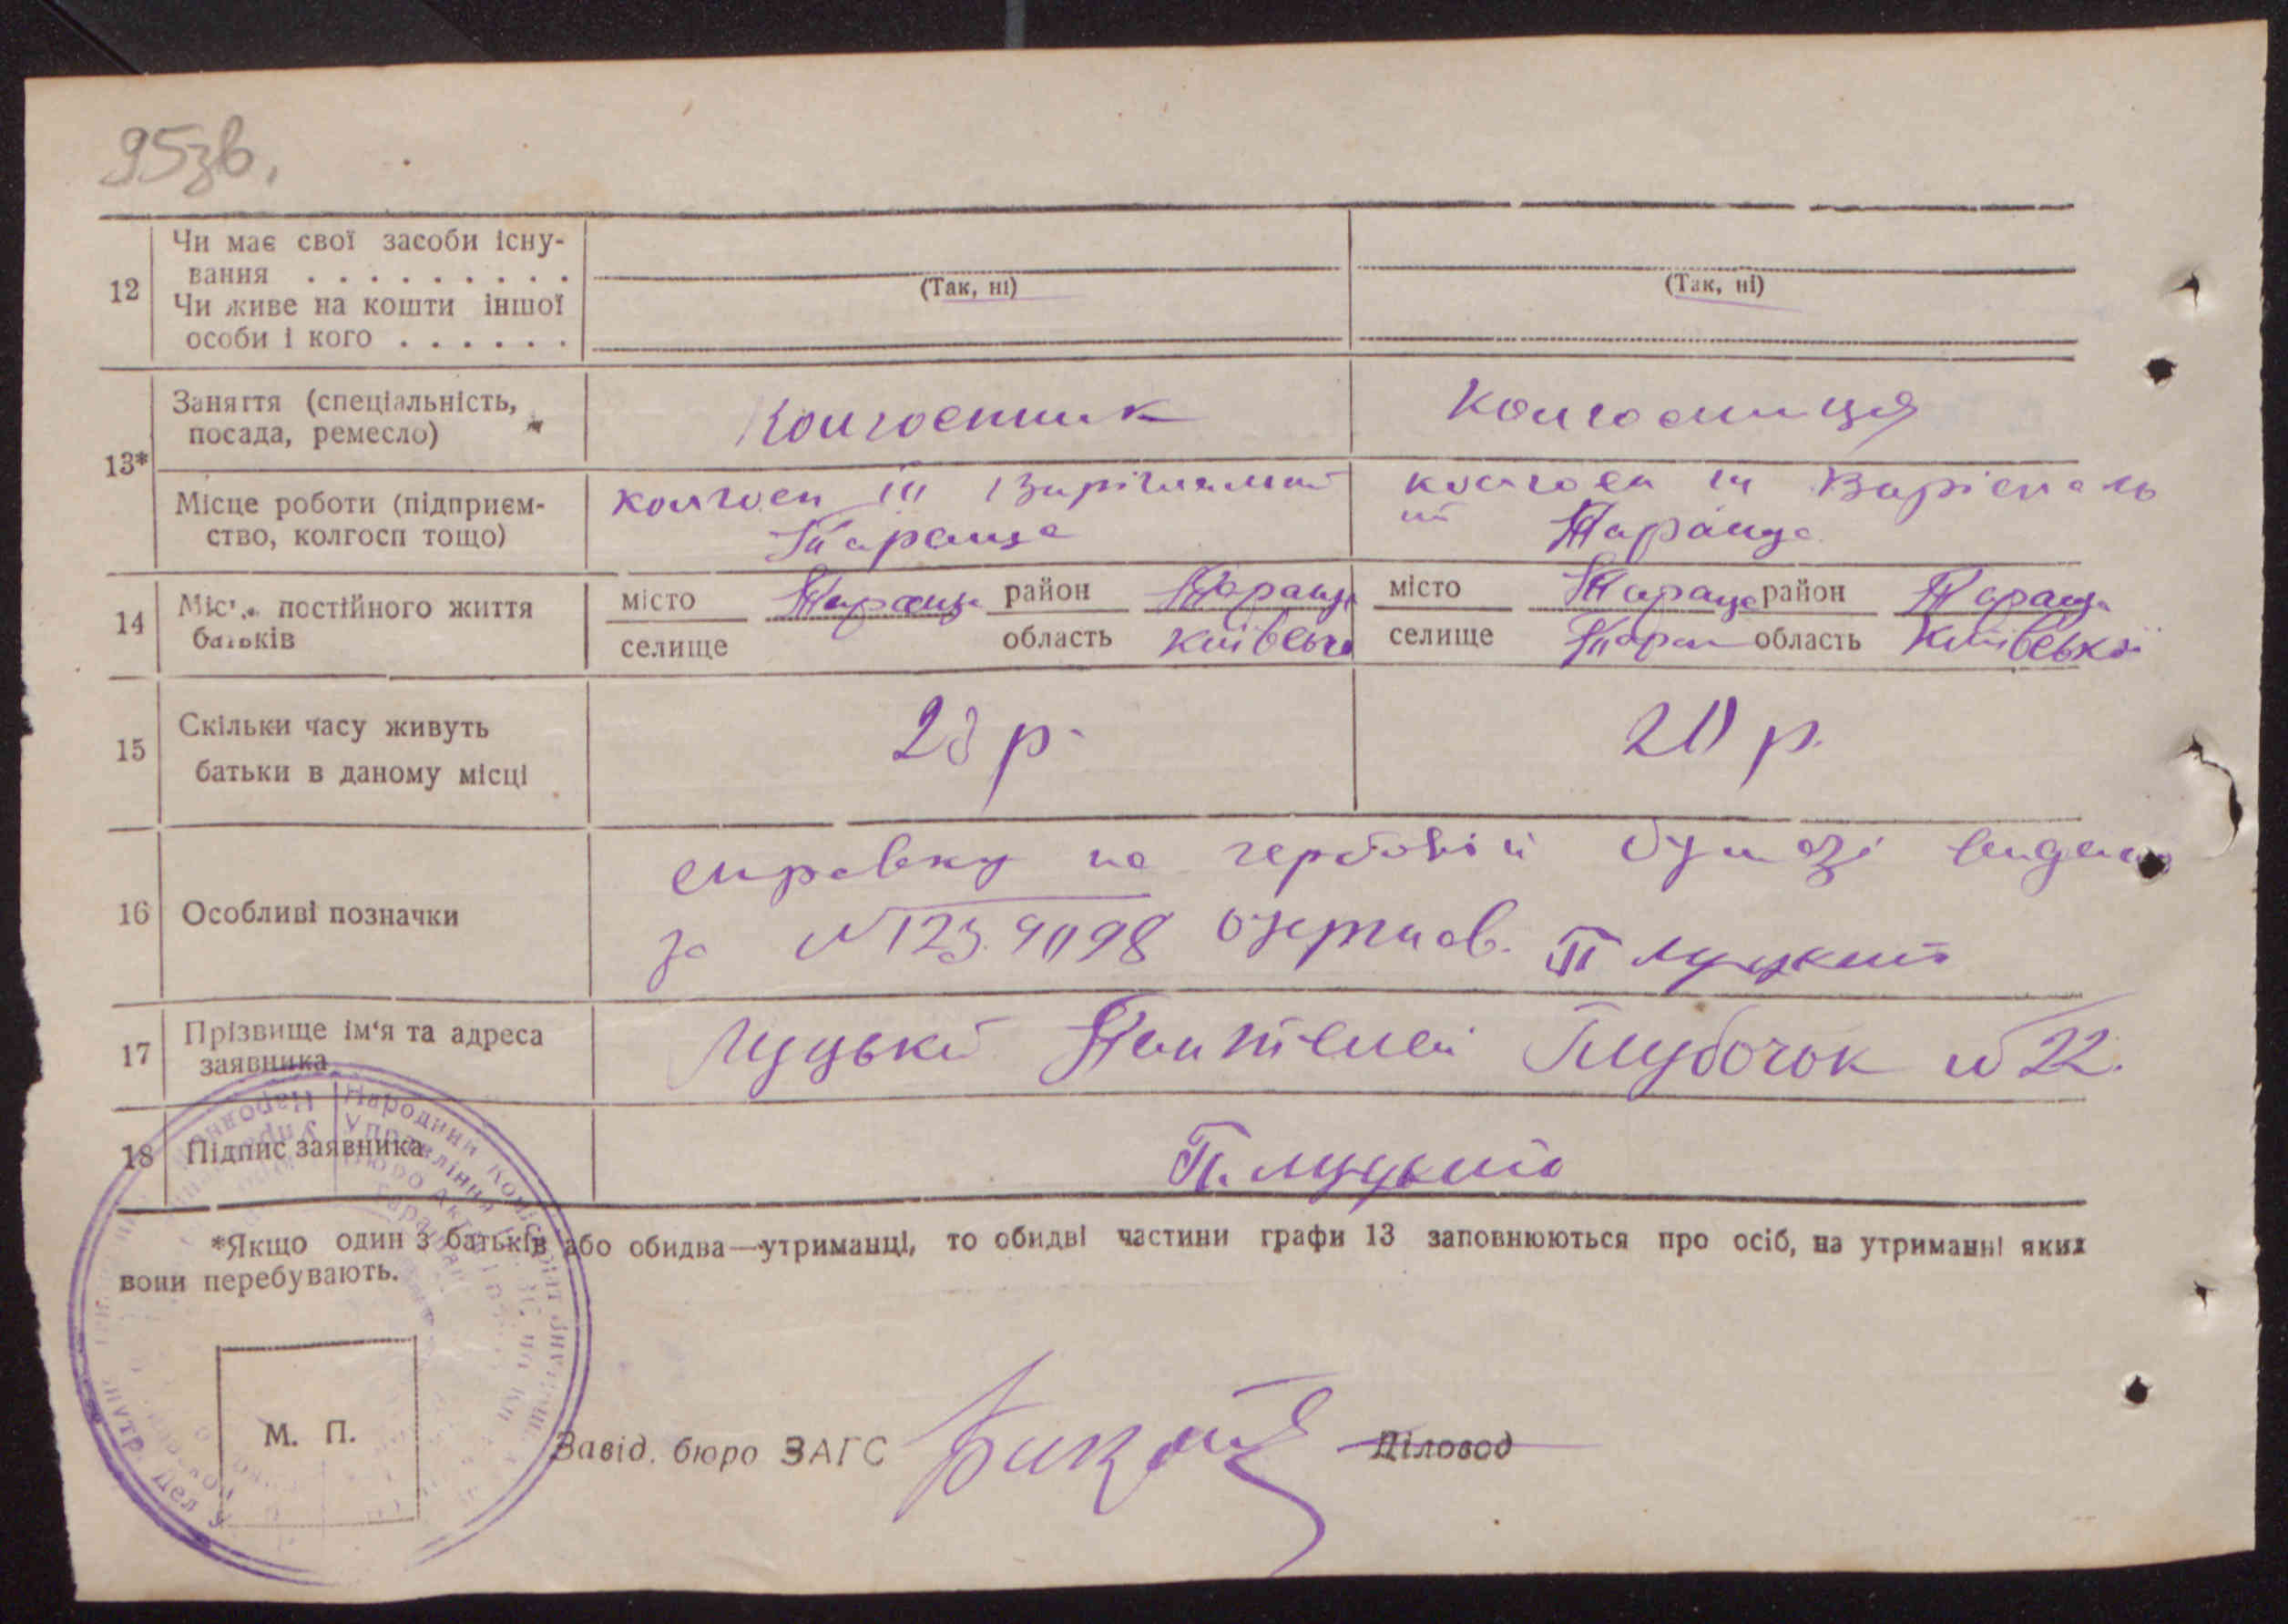 95зв.
12 Чи має свої засоби існу-
вання . . . . . . . . .
(Так, ні) (Так, ні)
Чи живе на кошти іншої
особи і кого . . . . . .
13* Заняття (спеціальність,
посада, ремесло) Колгоспник Колгоспниця
Місце роботи (підприєм-
ство, колгосп тощо) колгосп ІІІ Вирішальний колгосп ІІІ Вирішаль
ний
Тараща Тараща
14 Місце постійного життя
батьків
місто Тараща район Тараща місто Тараща район Тараща
селище область Київська селище Таращ область Київській
15 Скільки часу живуть
батьки в даному місці 23 р. 20 р.
16 Особливі позначки справку на гербовій бумазі видано
за № 123.9098 одержав. П Луцький
17 Прізвище ім'я та адреса
заявника Луцький Пантелей Глубочок № 22.
18 Підпис заявника П. Луцький
*Якщо один з батьків або обидва—утриманці, то обидві частини графи 13 заповнюються про осіб, на утриманні яких
вони перебувають.
М. П.
Завід. бюро ЗАГС Діловод
Народний Комісаріат Внутрішн
Управління
Бюро Актів